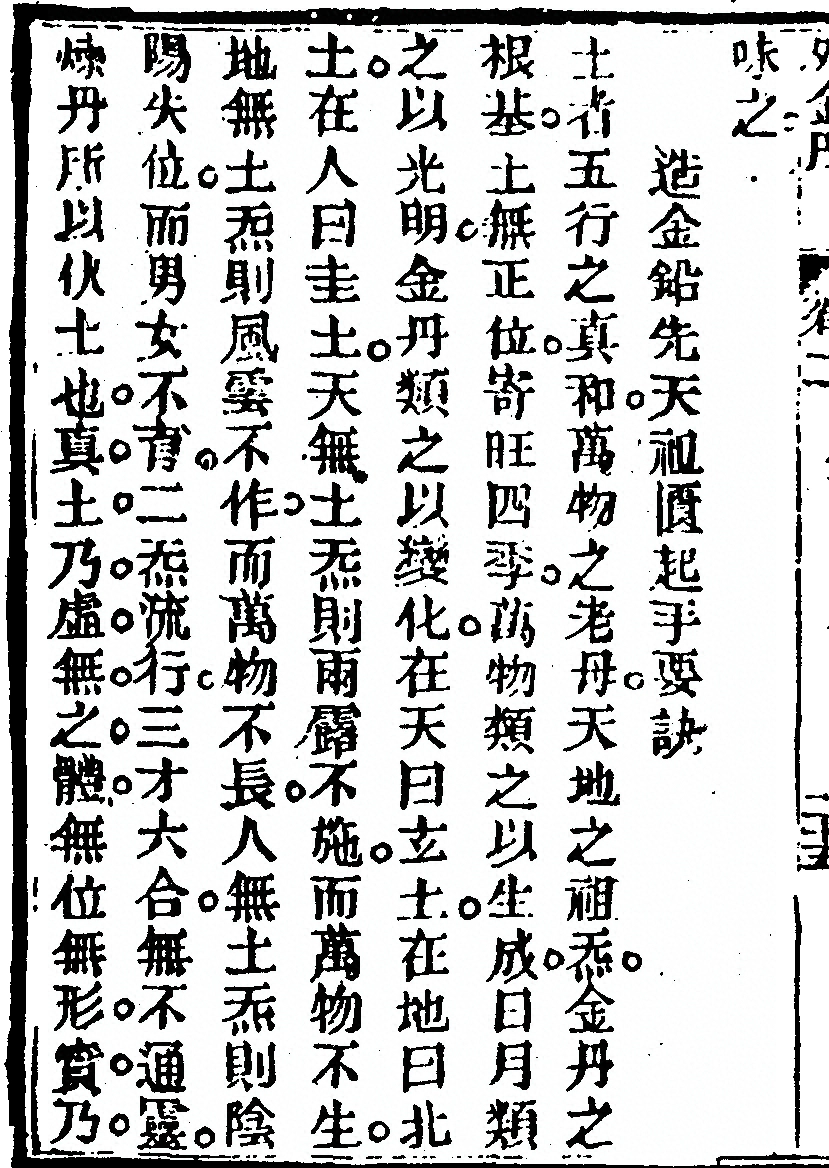 味之
造金鉛先天祖價起手要訣
土者五行之真和萬物之老母天地之祖炁金丹之
根基土無正位寄旺四季萬物類之以生成日月類
之以光明金丹類之以變化在天曰玄土在地曰北
土在人曰圭土天無土炁則雨露不施而萬物不生
地無土炁則風雲不作而萬物不長人無土炁則陰
陽失位而男女不育二炁流行三才六合無不通靈
煉丹所以伙土也真土乃虛無之體無位無形實乃